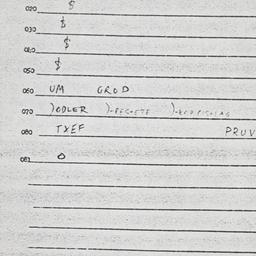 020 $
030 $
040 $
050 $
060 UM GROD
070 )ODLER
080 TXEF PRUV
081 O